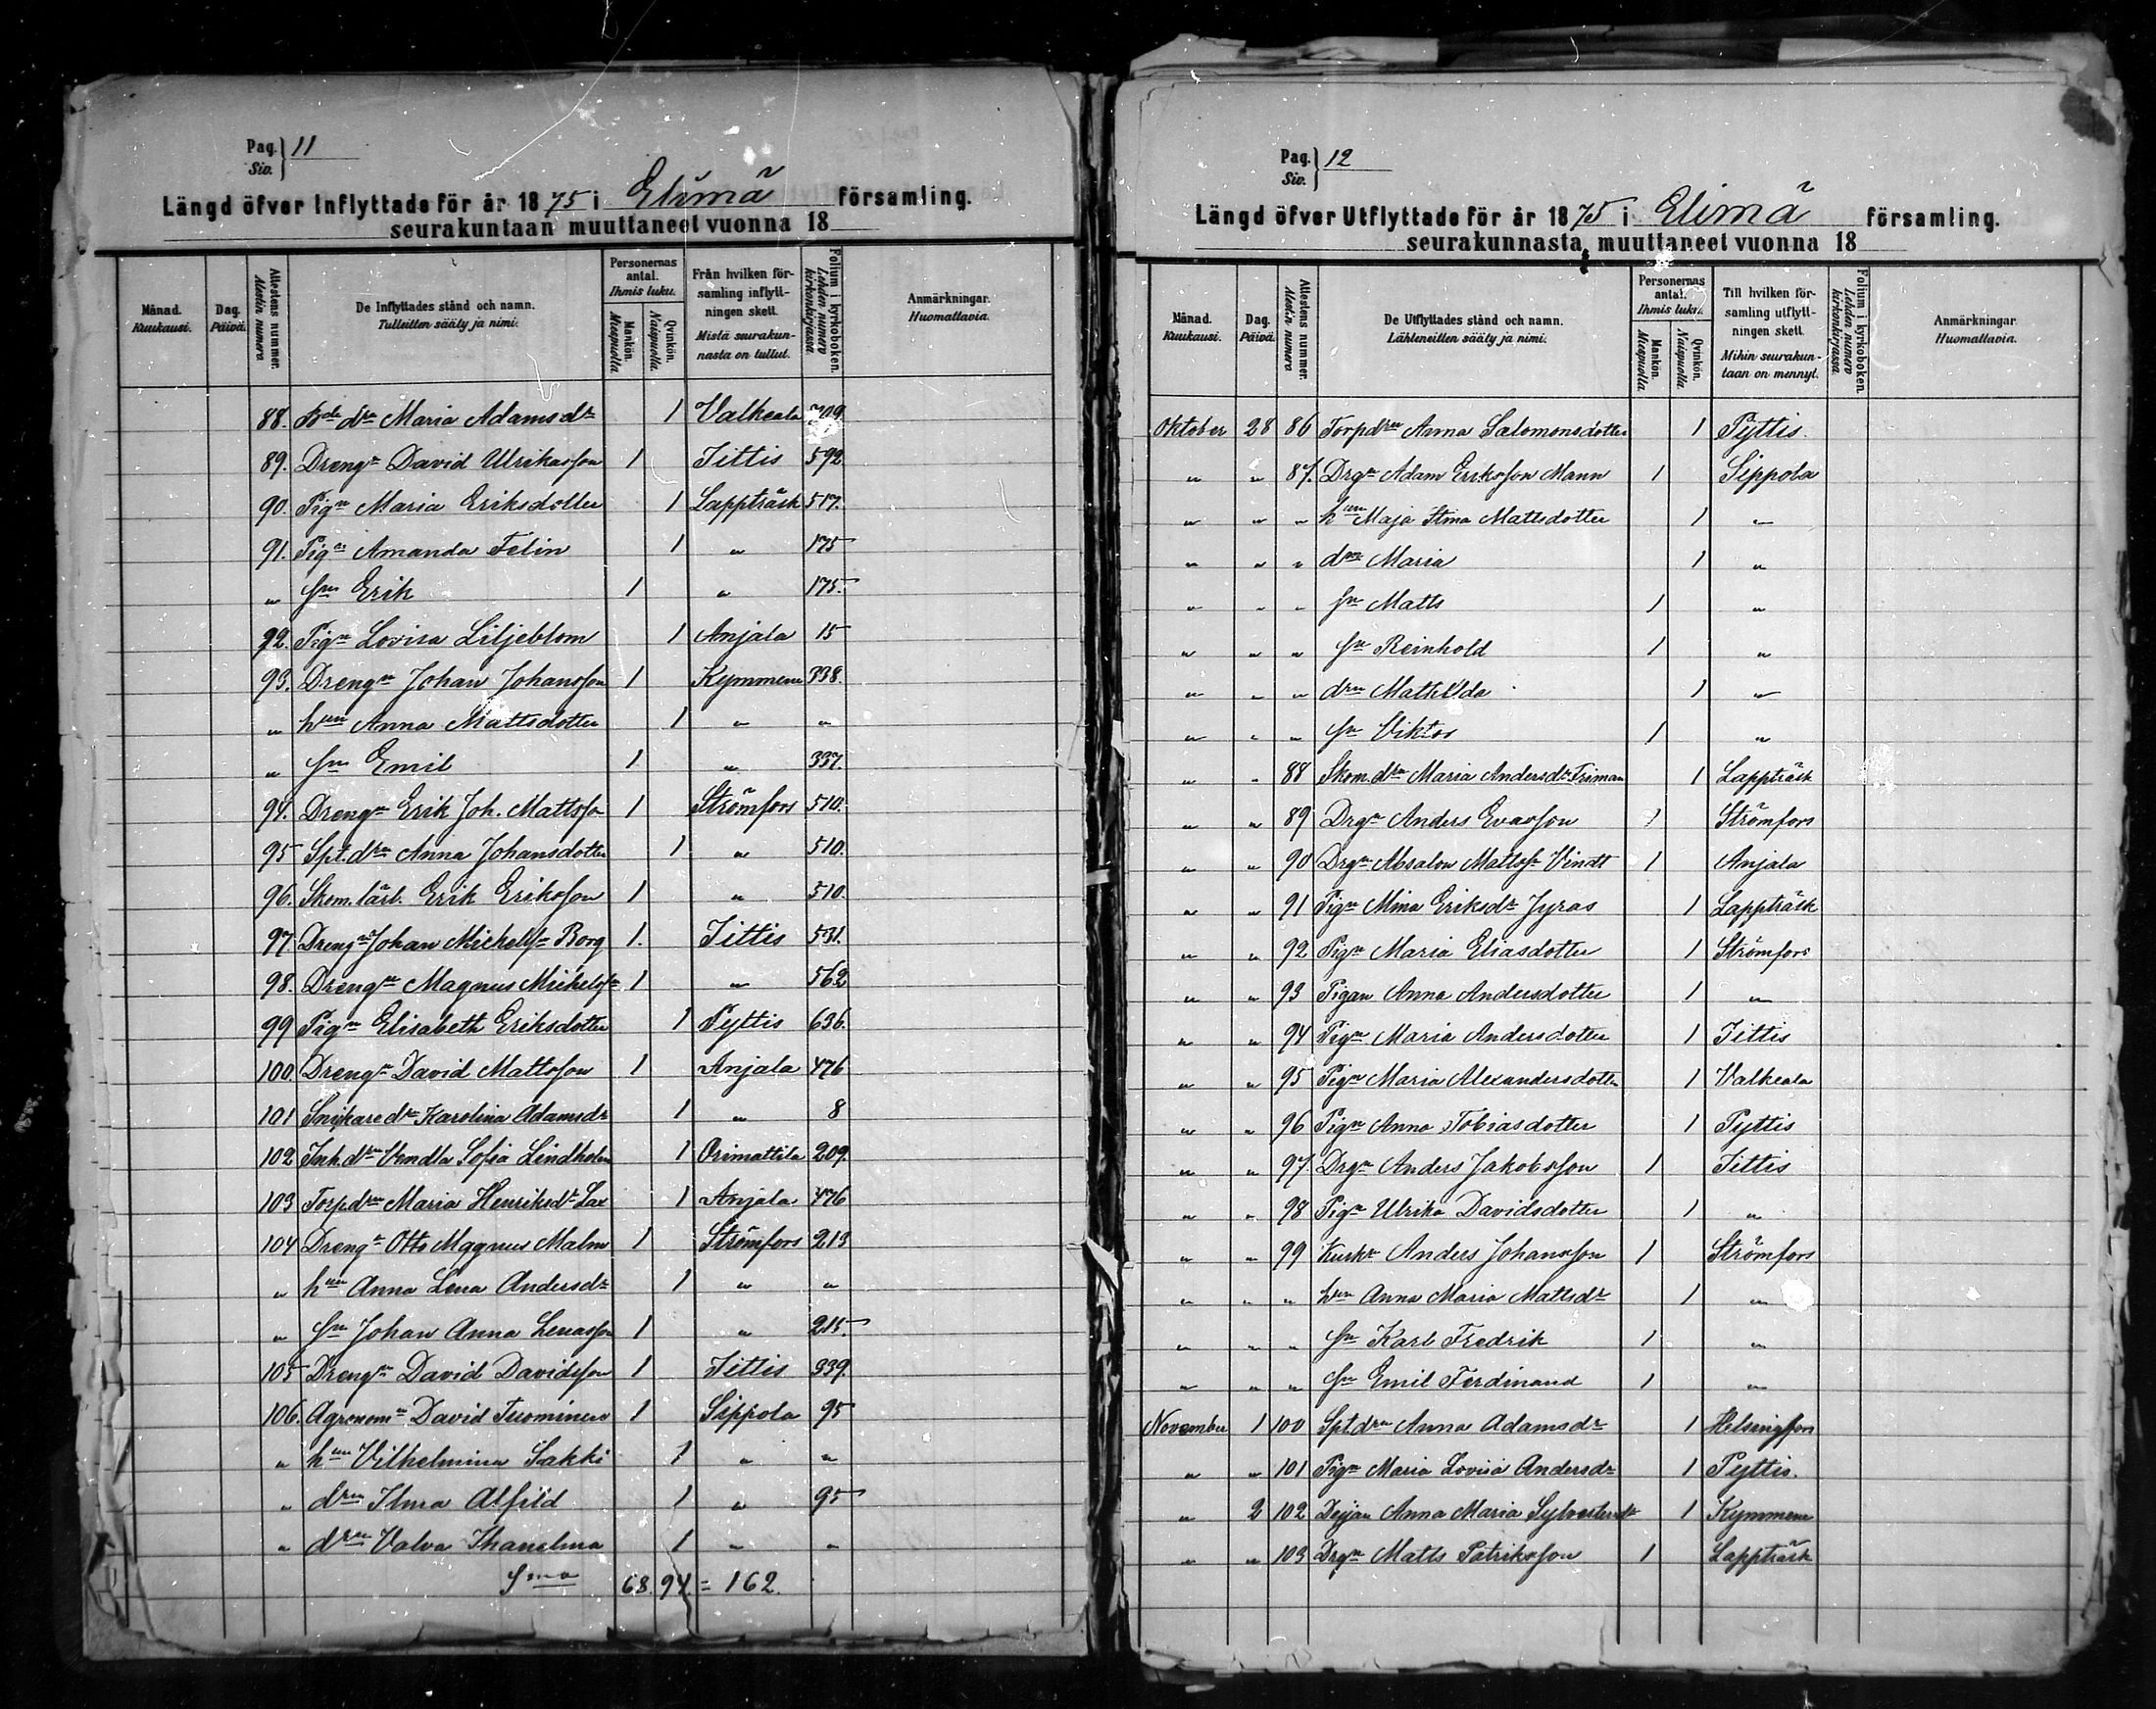 Pag. Siv. } 11
Längd öfver Inflyttade för år 1875 i Elimä församling.
seurakuntaan muuttaneet vuonna 18
Månad. Kuukausi.
Dag. Päivä.
Attestens nummer. Alestin numero
De Inflyttades stånd och namn. Tulleitten sääty ja nimi.
Personernas antal. Ihmis luku.
Mankön. Miespuolla
Qvinkön. Naispuolla.
Från hvilken församling inflyttningen skett. Mistä seurakunnasta on tullut.
Folium i kyrkoboken. Lehden numero kirkonkirjassa
Anmärkningar. Huomattavia.
88. Bde drn Maria Adamsdr 1 Valkeala 309.
89. Drengn David Ulrikasson 1 Jittis 592
90. Pign Maria Eriksdotter 1 Lappträsk 517.
91. Pign Amanda Felin 1 " 175
" sn Erik 1 " 175.
92. Pign Lovisa Liljeblom 1 Anjala 15
93. Drengn Johan Johansson 1 Kymmene 338.
" hun Anna Mattsdotter 1 " "
" sn Emil 1 " 337.
94. Drengn Erik Joh. Mattsson 1 Strömfors 510.
95 Spt. drn Anna Johansdotter 1 " 510.
96. Skom.lärl. Erik Eriksson 1 " 510.
97 Drengn Johan Michelsn Borg 1. Jittis 531.
98. Drengn Magnus Michelsn 1 " 562
99 Pign Elisabeth Eriksdotter 1 Pyttis 636.
100. Drengn David Mattsson 1 Anjala 476
101 Snikare dr Karolina Adamsdr 1 " 8
102 Inh. drn Vendla Sofia Lindholm 1 Orimattila 209.
103 Torp. drn Maria Henriksdr Lax 1 Anjala 476
104 Drengn Otto Magnus Malm 1 Strömfors 213
" hun Anna Lena Andersdr 1 " "
" sn Johan Anna Lenasson 1 " 215.
105 Drengn David Davidsson 1 Jittis 339.
106. Agronomn David Tuominen 1 Sippola 95
" hun Vilhelmina Sakki 1 " "
" drn Ilma Alfild 1 " 95
" drn Valva 1 " "
Sma 68. 94 = 162.
Pag. Siv. } 12
Längd öfver Utflyttade för år 1875 i Elimä församling.
seurakunnasta muuttaneet vuonna 18
Månad. Kuukausi.
Dag. Päivä.
Attestens nummer. Alestin numero
De Utflyttades stånd och namn. Lähteneitten sääty ja nimi.
Personernas antal. Ihmis luku.
Mankön. Miespuolla
Qvinkön. Naispuolla
Till hvilken församling utflyttningen skett. Mihin seurakuntaan on mennyt.
Folium i kyrkoboken. Lehden numero kirkonkirjassa
Anmärkningar. Huomattavia.
Oktober 28 86 Torpdrn Anna Salomonsdotter 1 Pyttis.
" " 87. Drgn Adam Eriksson Mann 1 Sippola
" " " hun Maja Stina Mattsdotter 1 "
" " " drn Maria 1 "
" " " sn Matts 1 "
" " " sn Reinhold 1 "
" " " drn Mathilda 1 "
" " " sn Viktor 1 "
" " 88 Skom. drn Maria Andersdr Friman 1 Lappträsk
" " 89 Drgn Anders Evasson 1 Strömfors
" " 90 Drgn Absalon Mattssn Vindt 1 Anjala
" " 91 Pign Mina Eriksdr Jyras 1 Lappträsk
" " 92 Pign Maria Eliasdotter 1 Strömfors
" " 93 Pigan Anna Andersdotter 1 "
" " 94 Pign Maria Andersdotter 1 Jittis
" " 95 Pign Maria Alexandersdotter 1 Valkeala
" " 96 Pign Anna Tobiasdotter 1 Pyttis
" " 97. Drgn Anders Jakobsson 1 Jittis
" " 98 Pign Ulrika Davidsdotter 1 "
" " 99 Kuskn Anders Johansson 1 Strömfors
" " " hun Anna Maria Mattsdr 1 "
" " " sn Karl Fredrik 1 "
" " " sn Emil Ferdinand 1 "
November 1 100 Spt. drn Anna Adamsdr 1 Helsingfors
" " 101 Pign Maria Lovisa Andersdr 1 Pyttis.
" 2 102 Dejan Anna Maria Sylvestersdr 1 Kymmene
" " 103 Drgn Matts Patriksson 1 Lappträsk